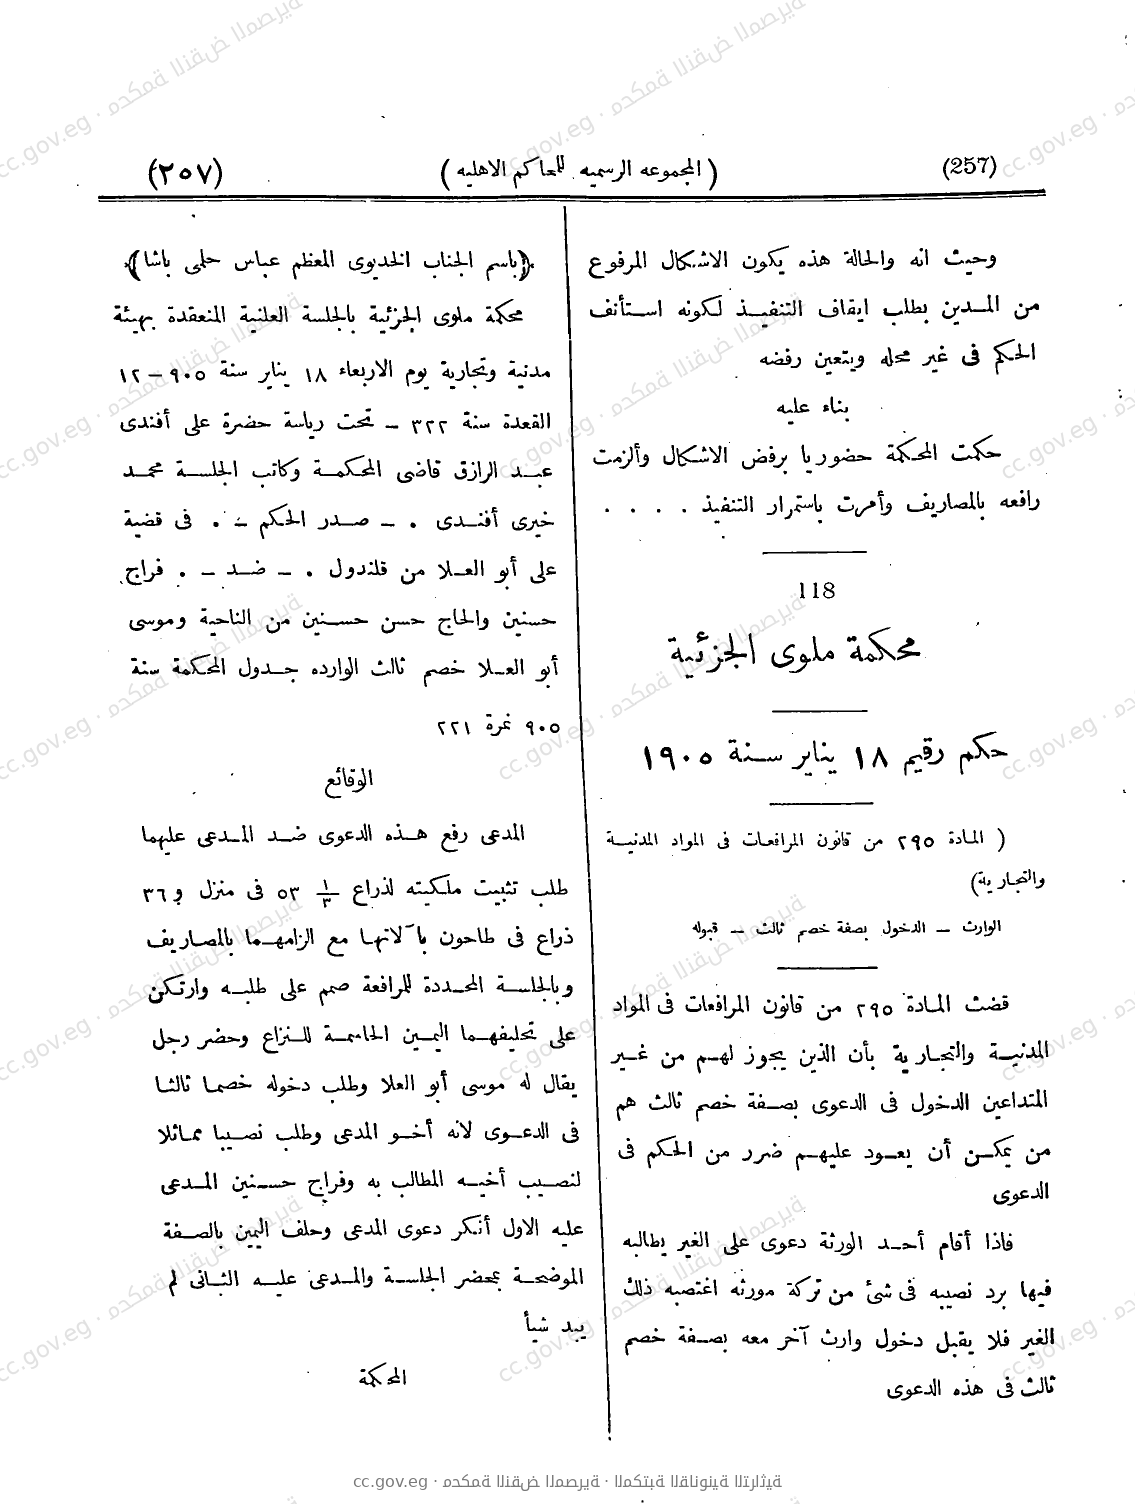 (257) ( المجموعه الرسميه للمحاكم الاهليه ) (٢٥٧)
وحيث انه والحالة هذه يكون الاشكال المرفوع
من المدين بطلب ايقاف التنفيذ لكونه استأنف
الحكم فى غير محله ويتعين رفضه
بناء عليه
حكمت المحكمة حضوريا برفض الاشكال وألزمت
رافعه بالمصاريف وأمرت باستمرار التنفيذ . . . .
118
محكمة ملوى الجزئية
حكم رقيم ١٨ يناير سنة ١٩٠٥
( المادة ٢٩٥ من قانون المرافعات فى المواد المدنية
والتجارية)
الوارث – الدخول بصفة خصم ثالث – قبوله
قضت المادة ٢٩٥ من قانون المرافعات فى المواد
المدنية والتجارية بأن الذين يجوز لهم من غير
المتداعين الدخول فى الدعوى بصفة خصم ثالث هم
من يمكن أن يعود عليهم ضرر من الحكم فى
الدعوى
فاذا أقام أحد الورثة دعوى على الغير يطالبه
فيها برد نصيبه فى شئ من تركة مورثه اغتصبه ذلك
الغير فلا يقبل دخول وارث آخر معه بصفة خصم
ثالث فى هذه الدعوى
﴿باسم الجناب الخديوى المعظم عباس حلمى باشا﴾
محكمة ملوى الجزئية بالجلسة العلنية المنعقدة بهيئة
مدنية وتجارية يوم الاربعاء ١٨ يناير سنة ٩٠٥ – ١٢
القعدة سنة ٣٢٢ – تحت رياسة حضرة على أفندى
عبد الرازق قاضى المحكمة وكاتب الجلسة محمد
خيرى أفندى . – صدر الحكم – . فى قضية
على أبو العلا من قلندول . – ضد – . فراج
حسنين والحاج حسن حسنين من الناحية وموسى
أبو العلا خصم ثالث الوارده جدول المحكمة سنة
٩٠٥ نمرة ٢٢١
الوقائع
المدعى رفع هذه الدعوى ضد المدعى عليهما
طلب تثبيت ملكيته لذراع ١/٣ ٥٣ فى منزل و ٣٦
ذراع فى طاحون بآلاتها مع الزامهما بالمصاريف
وبالجلسة المحددة للمرافعة صمم على طلبه وارتكن
على تحليفهما اليمين الحاسمة للنزاع وحضر رجل
يقال له موسى أبو العلا وطلب دخوله خصما ثالثا
فى الدعوى لانه أخو المدعى وطلب نصيبا مماثلا
لنصيب أخيه المطالب به وفراج حسنين المدعى
عليه الاول أنكر دعوى المدعى وحلف اليمين بالصفة
الموضحة بمحضر الجلسة والمدعى عليه الثانى لم
يبد شيأ
المحكمة
cc.gov.eg · محكمة النقض المصرية · المكتبة القانونية التراثية